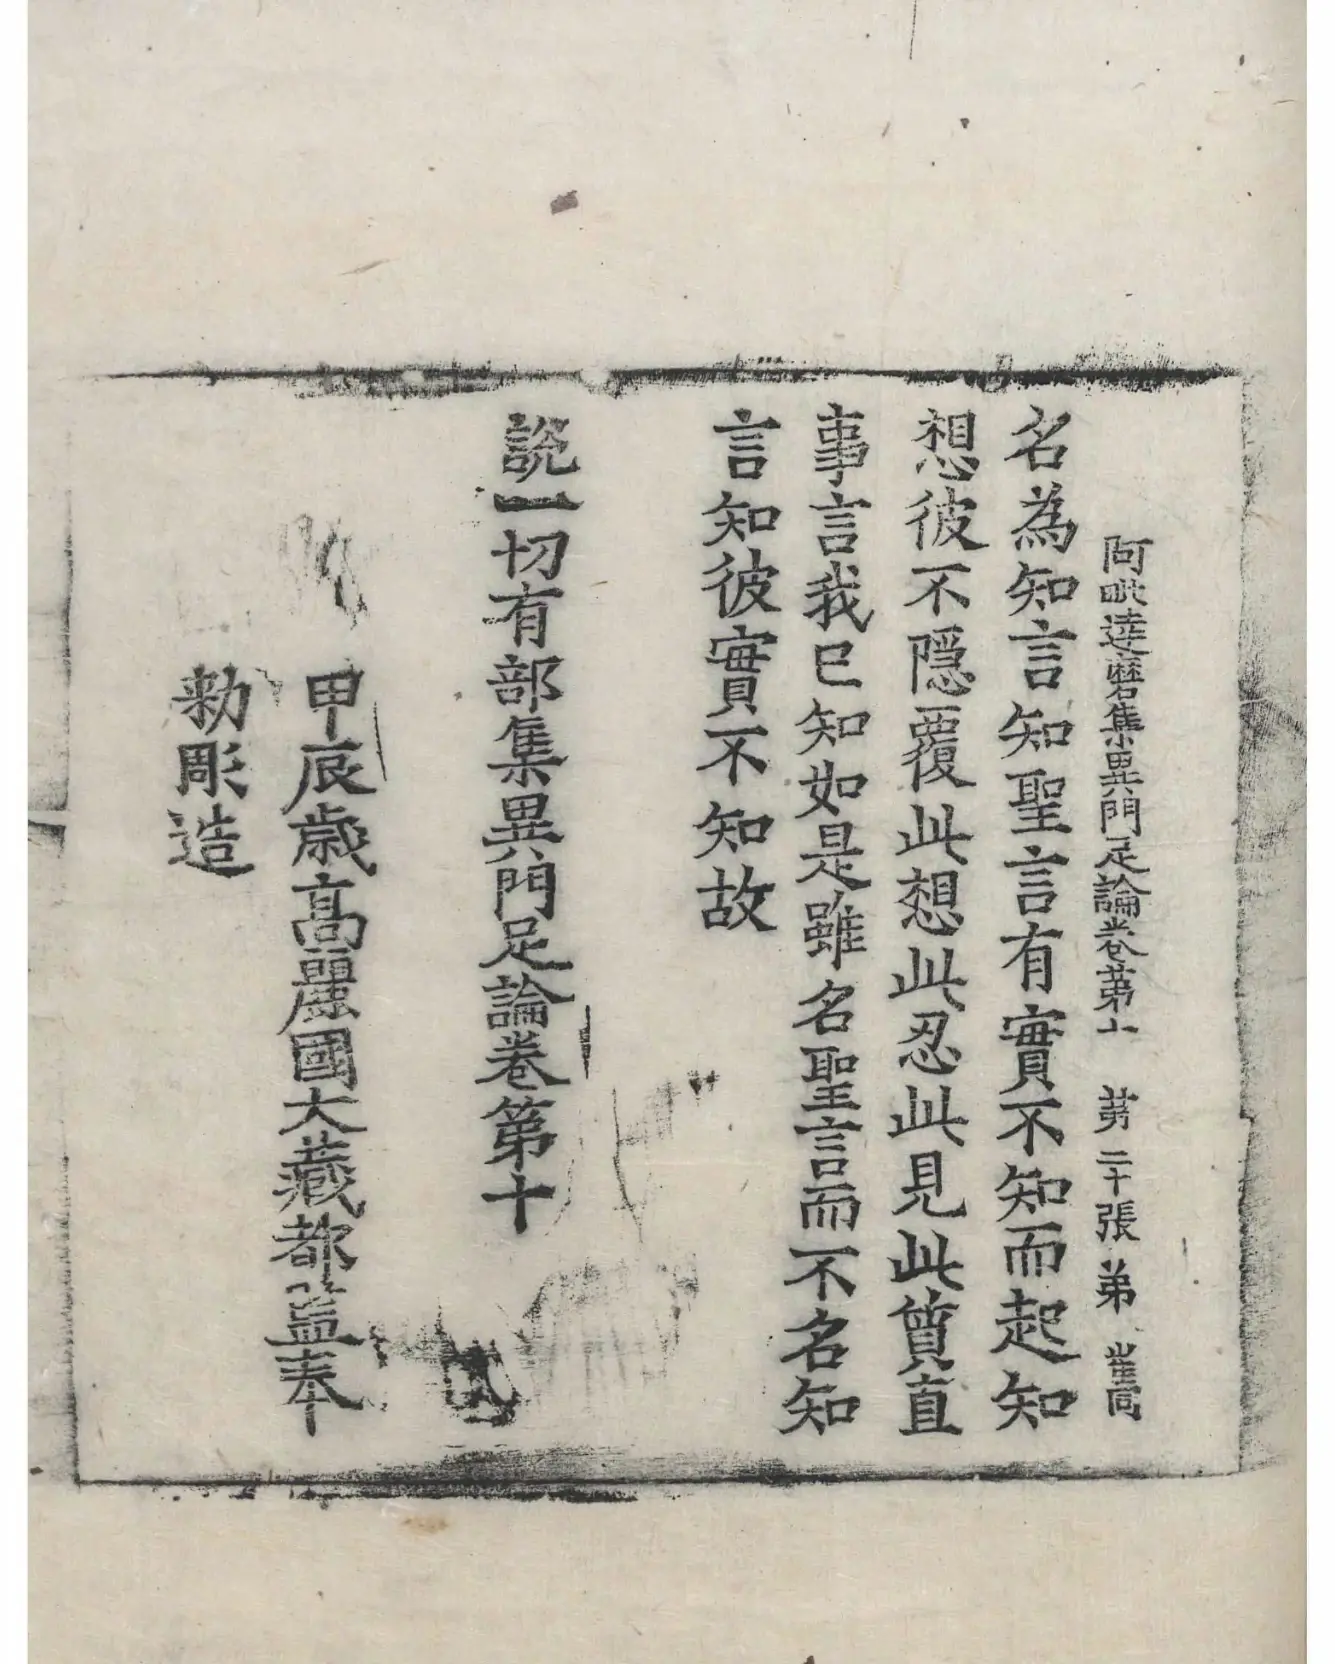 阿毗達磨集異門足論卷第十 第二十張 弟
名為知言知聖言有實不知而起知
想彼不隱覆此想此忍此見此質直
事言我已知如是雖名聖言而不名知
言知彼實不知故
說一切有部集異門足論卷第十
甲辰歲高麗國大藏都監奉
勅彫造